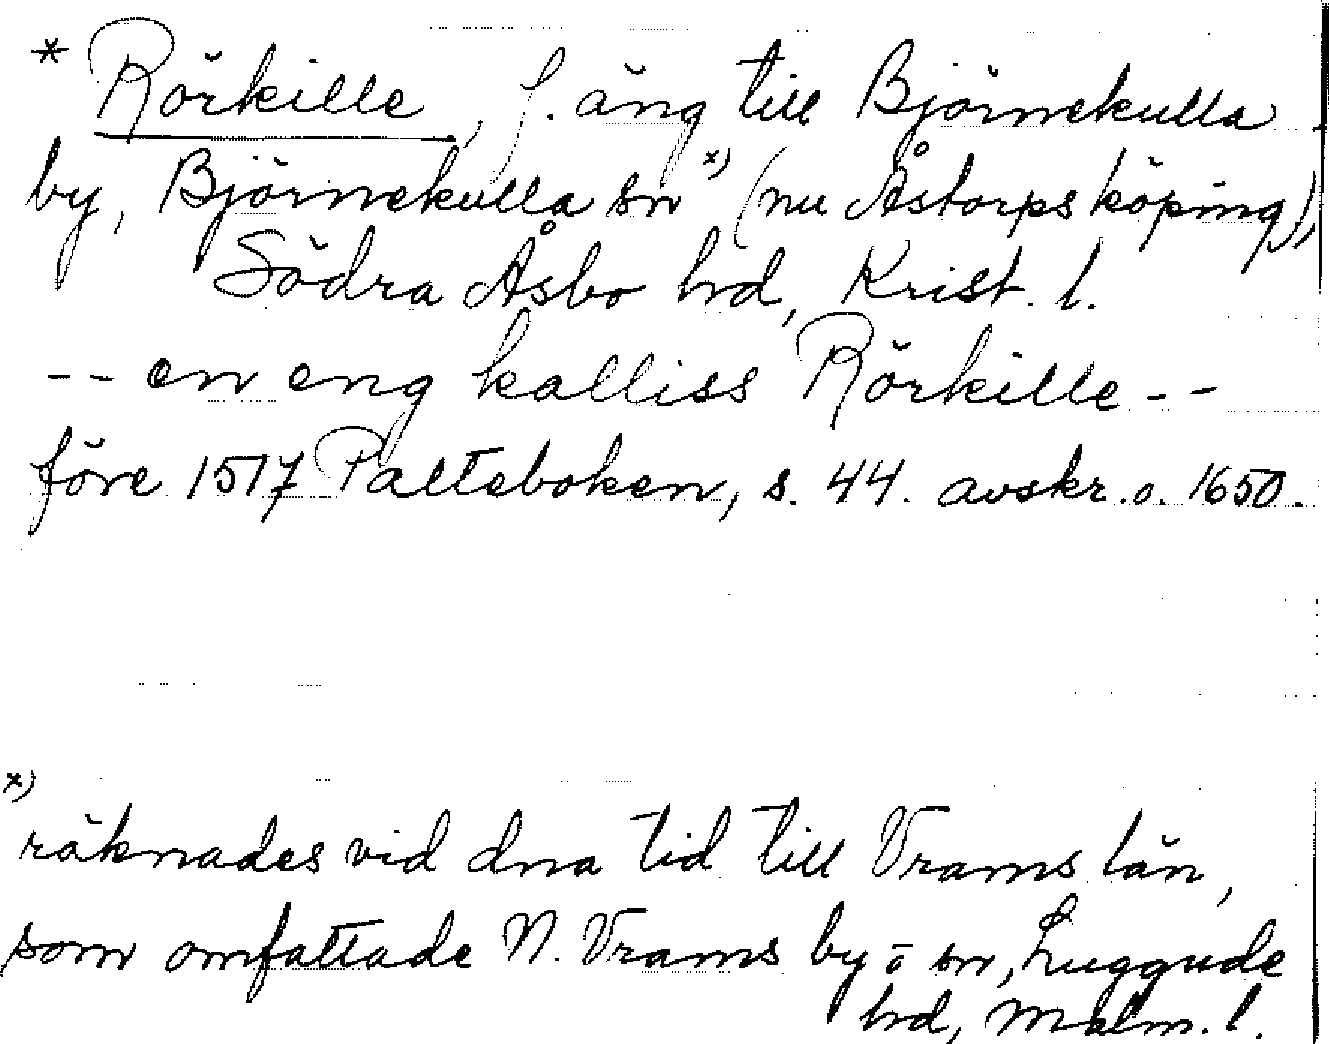 * Rörkille, f. äng till Björnekulla
by, Björnekulla sn x) (nu Åstorps köping),
Södra Åsbo hrd, Krist. l.
-- en eng kalliss Rörkille --
före 1517 Palteboken, s. 44. avskr. o. 1650.
x)
räknades vid dna tid till Vrams län,
som omfattade N. Vrams by o sn, Luggude
hrd, Malm. l.